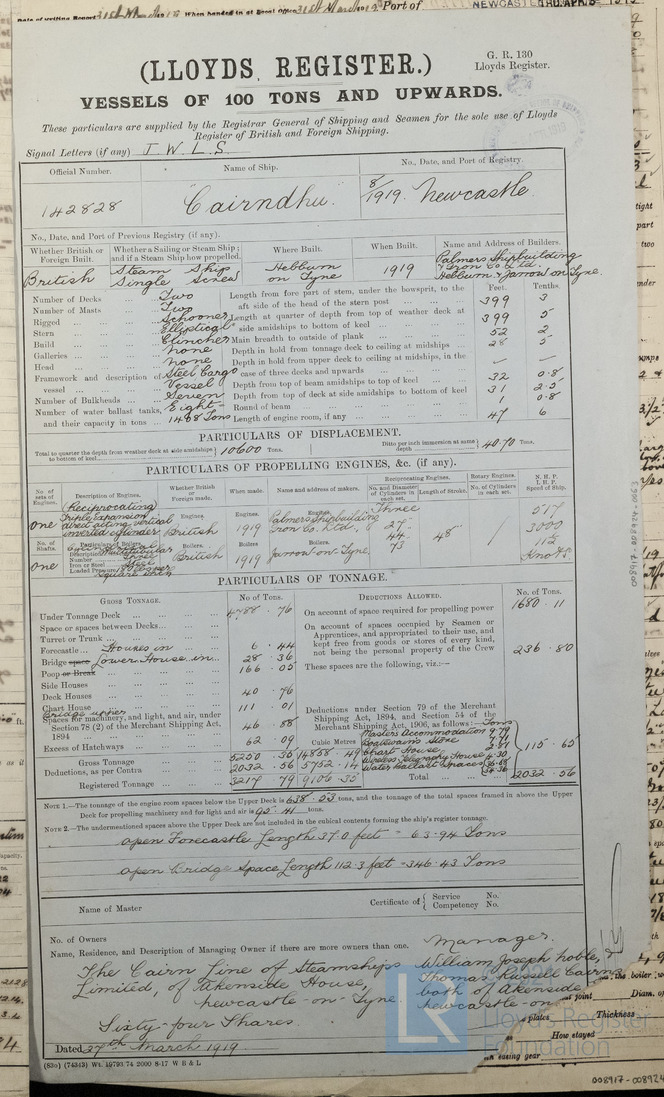 Date of writing Report 31st March 19 When handed in at Local Office 31st March 1919 Port of NEWCASTLE THU. APR. 3 - 1919
(LLOYDS REGISTER.)
G. R. 130
Lloyds Register.
VESSELS OF 100 TONS AND UPWARDS.
These particulars are supplied by the Registrar General of Shipping and Seamen for the sole use of Lloyds
Register of British and Foreign Shipping.
Signal Letters (if any) J. W. L. S.
Official Number. Name of Ship. No., Date, and Port of Registry.
142828 "Cairndhu." 8/1919. Newcastle.
No., Date, and Port of Previous Registry (if any).
Whether British or Foreign Built. Whether a Sailing or Steam Ship; and if a Steam Ship how propelled. Where Built. When Built. Name and Address of Builders.
British Steam Ship Single Screw Hebburn on Tyne 1919 Palmers Shipbuilding & Iron Co. Ltd. Hebburn & Jarrow on Tyne
Feet. Tenths.
Number of Decks Two
Number of Masts Two
Rigged Schooner
Stern Elliptical
Build Clincher
Galleries None
Head None
Framework and description of vessel Steel Cargo Vessel
Number of Bulkheads Seven
Number of water ballast tanks, and their capacity in tons Eight - 1408 Tons
Length from fore part of stem, under the bowsprit, to the aft side of the head of the stern post 399 3
Length at quarter of depth from top of weather deck at side amidships to bottom of keel 399 5
Main breadth to outside of plank 52 2
Depth in hold from tonnage deck to ceiling at midships 28 5
Depth in hold from upper deck to ceiling at midships, in the case of three decks and upwards — —
Depth from top of beam amidships to top of keel 32 0.8
Depth from top of deck at side amidships to bottom of keel 31 2.5
Round of beam 1 0.8
Length of engine room, if any 47 6
PARTICULARS OF DISPLACEMENT.
Total to quarter the depth from weather deck at side amidships to bottom of keel 10600 Tons. Ditto per inch immersion at same depth 40.70 Tons.
PARTICULARS OF PROPELLING ENGINES, &c. (if any).
No. of sets of Engines. Description of Engines. Whether British or Foreign made. When made. Name and address of makers. Reciprocating Engines. No. and Diameter of Cylinders in each set. Length of Stroke. Rotary Engines. No. of Cylinders in each set. N. H. P. I. H. P. Speed of Ship.
One Reciprocating Triple Expansion direct acting vertical inverted cylinder Engines. British Engines. 1919 Engines. Palmers Shipbuilding & Iron Co. Ltd., Three 27" 44" 73" 48" 517 3000 11½ Knots.
No. of Shafts. Particulars of Boilers. Description Multitubular Number Three Iron or Steel Steel Loaded Pressure
One Boilers British Boilers 1919 Boilers. Jarrow-on-Tyne.
PARTICULARS OF TONNAGE.
GROSS TONNAGE. No of Tons. DEDUCTIONS ALLOWED. No. of Tons.
Under Tonnage Deck 4788 . 76
Space or spaces between Decks
Turret or Trunk
Forecastle Houses in 6 . 44
Bridge space Lower House in 28 . 36
Poop or Break 166 . 05
Side Houses
Deck Houses 40 . 76
Chart House Bridge upper 111 . 01
Spaces for machinery, and light, and air, under Section 78 (2) of the Merchant Shipping Act, 1894 46 . 88
Excess of Hatchways 62 . 09
Cubic Metres
Gross Tonnage 5250 . 35 14858 . 49
Deductions, as per Contra 2032 . 56 5752 . 14
Registered Tonnage 3217 . 79 9106 . 35
On account of space required for propelling power 1680 . 11
On account of spaces occupied by Seamen or Apprentices, and appropriated to their use, and kept free from goods or stores of every kind, not being the personal property of the Crew 236 . 80
These spaces are the following, viz.:—
Deductions under Section 79 of the Merchant Shipping Act, 1894, and Section 54 of the Merchant Shipping Act, 1906, as follows:— Tons
Masters Accommodation 9.79
Boatswains Store
Chart House
Wireless Telegraphy House
Water Ballast Spaces
115 . 65
Total 2032 . 56
NOTE 1.—The tonnage of the engine room spaces below the Upper Deck is 638 . 53 tons, and the tonnage of the total spaces framed in above the Upper
Deck for propelling machinery and for light and air is 92 . 41 tons.
NOTE 2.—The undermentioned spaces above the Upper Deck are not included in the cubical contents forming the ship's register tonnage.
Open Forecastle Length 37.0 feet = 63.94 Tons
Open Bridge Space Length 112.3 feet = 346.43 Tons
Name of Master Certificate of { Service No. Competency No.
No. of Owners
Name, Residence, and Description of Managing Owner if there are more owners than one.
Manager.
The Cairn Line of Steamships William Joseph Noble, &
Limited, of Akenside House, Thomas Russell Cairns
Newcastle-on-Tyne. both of Akenside
Newcastle-on-
Sixty-four Shares
Dated 27th March 1919
(83o) (74343) Wt. 19793/74 2000 8-17 W B & L
Lloyd's Register
Foundation
plates Thickness
How stayed
Diam. of
008917-008924-0063
008917-008924